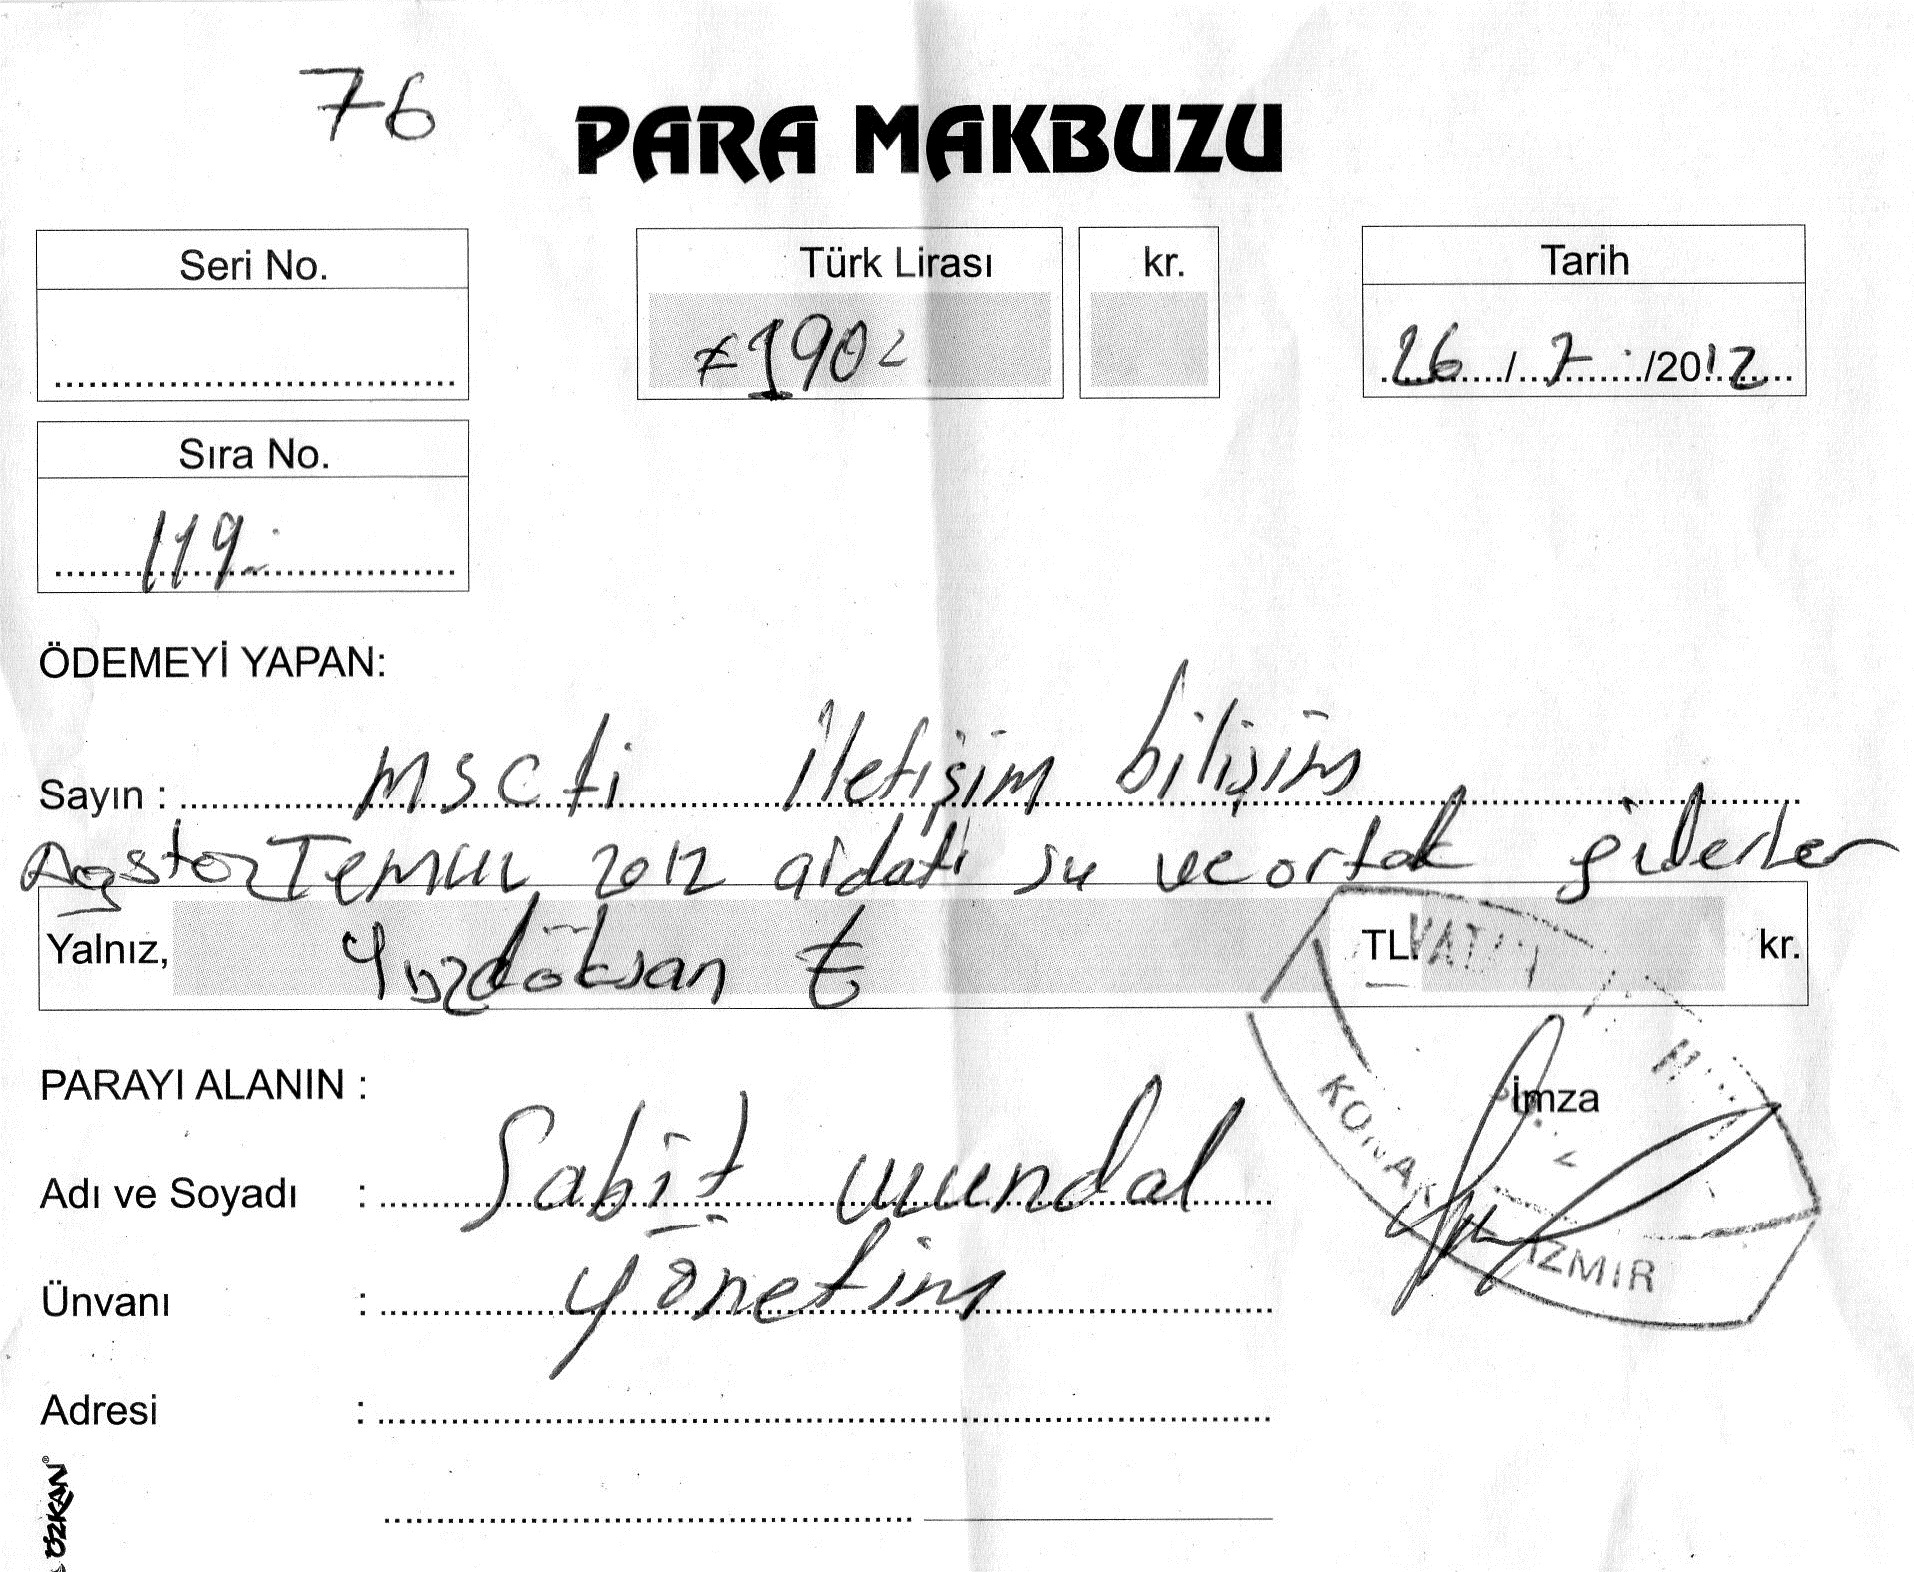 76
PARA MAKBUZU
Seri No.
Türk Lirası kr.
Tarih
≠190
26 / 7 /2012
Sıra No.
119
ÖDEMEYİ YAPAN:
Sayın : mscti iletişim bilişim
Agstoz Temuz 2012 aidatı su ve ortak giderler
Yalnız, Yüzdoksan ₺ TL. kr.
PARAYI ALANIN :
İmza
Adı ve Soyadı : Sabit
Ünvanı : Yönetim
Adresi :
KONAK İZMİR
ÖZKAN